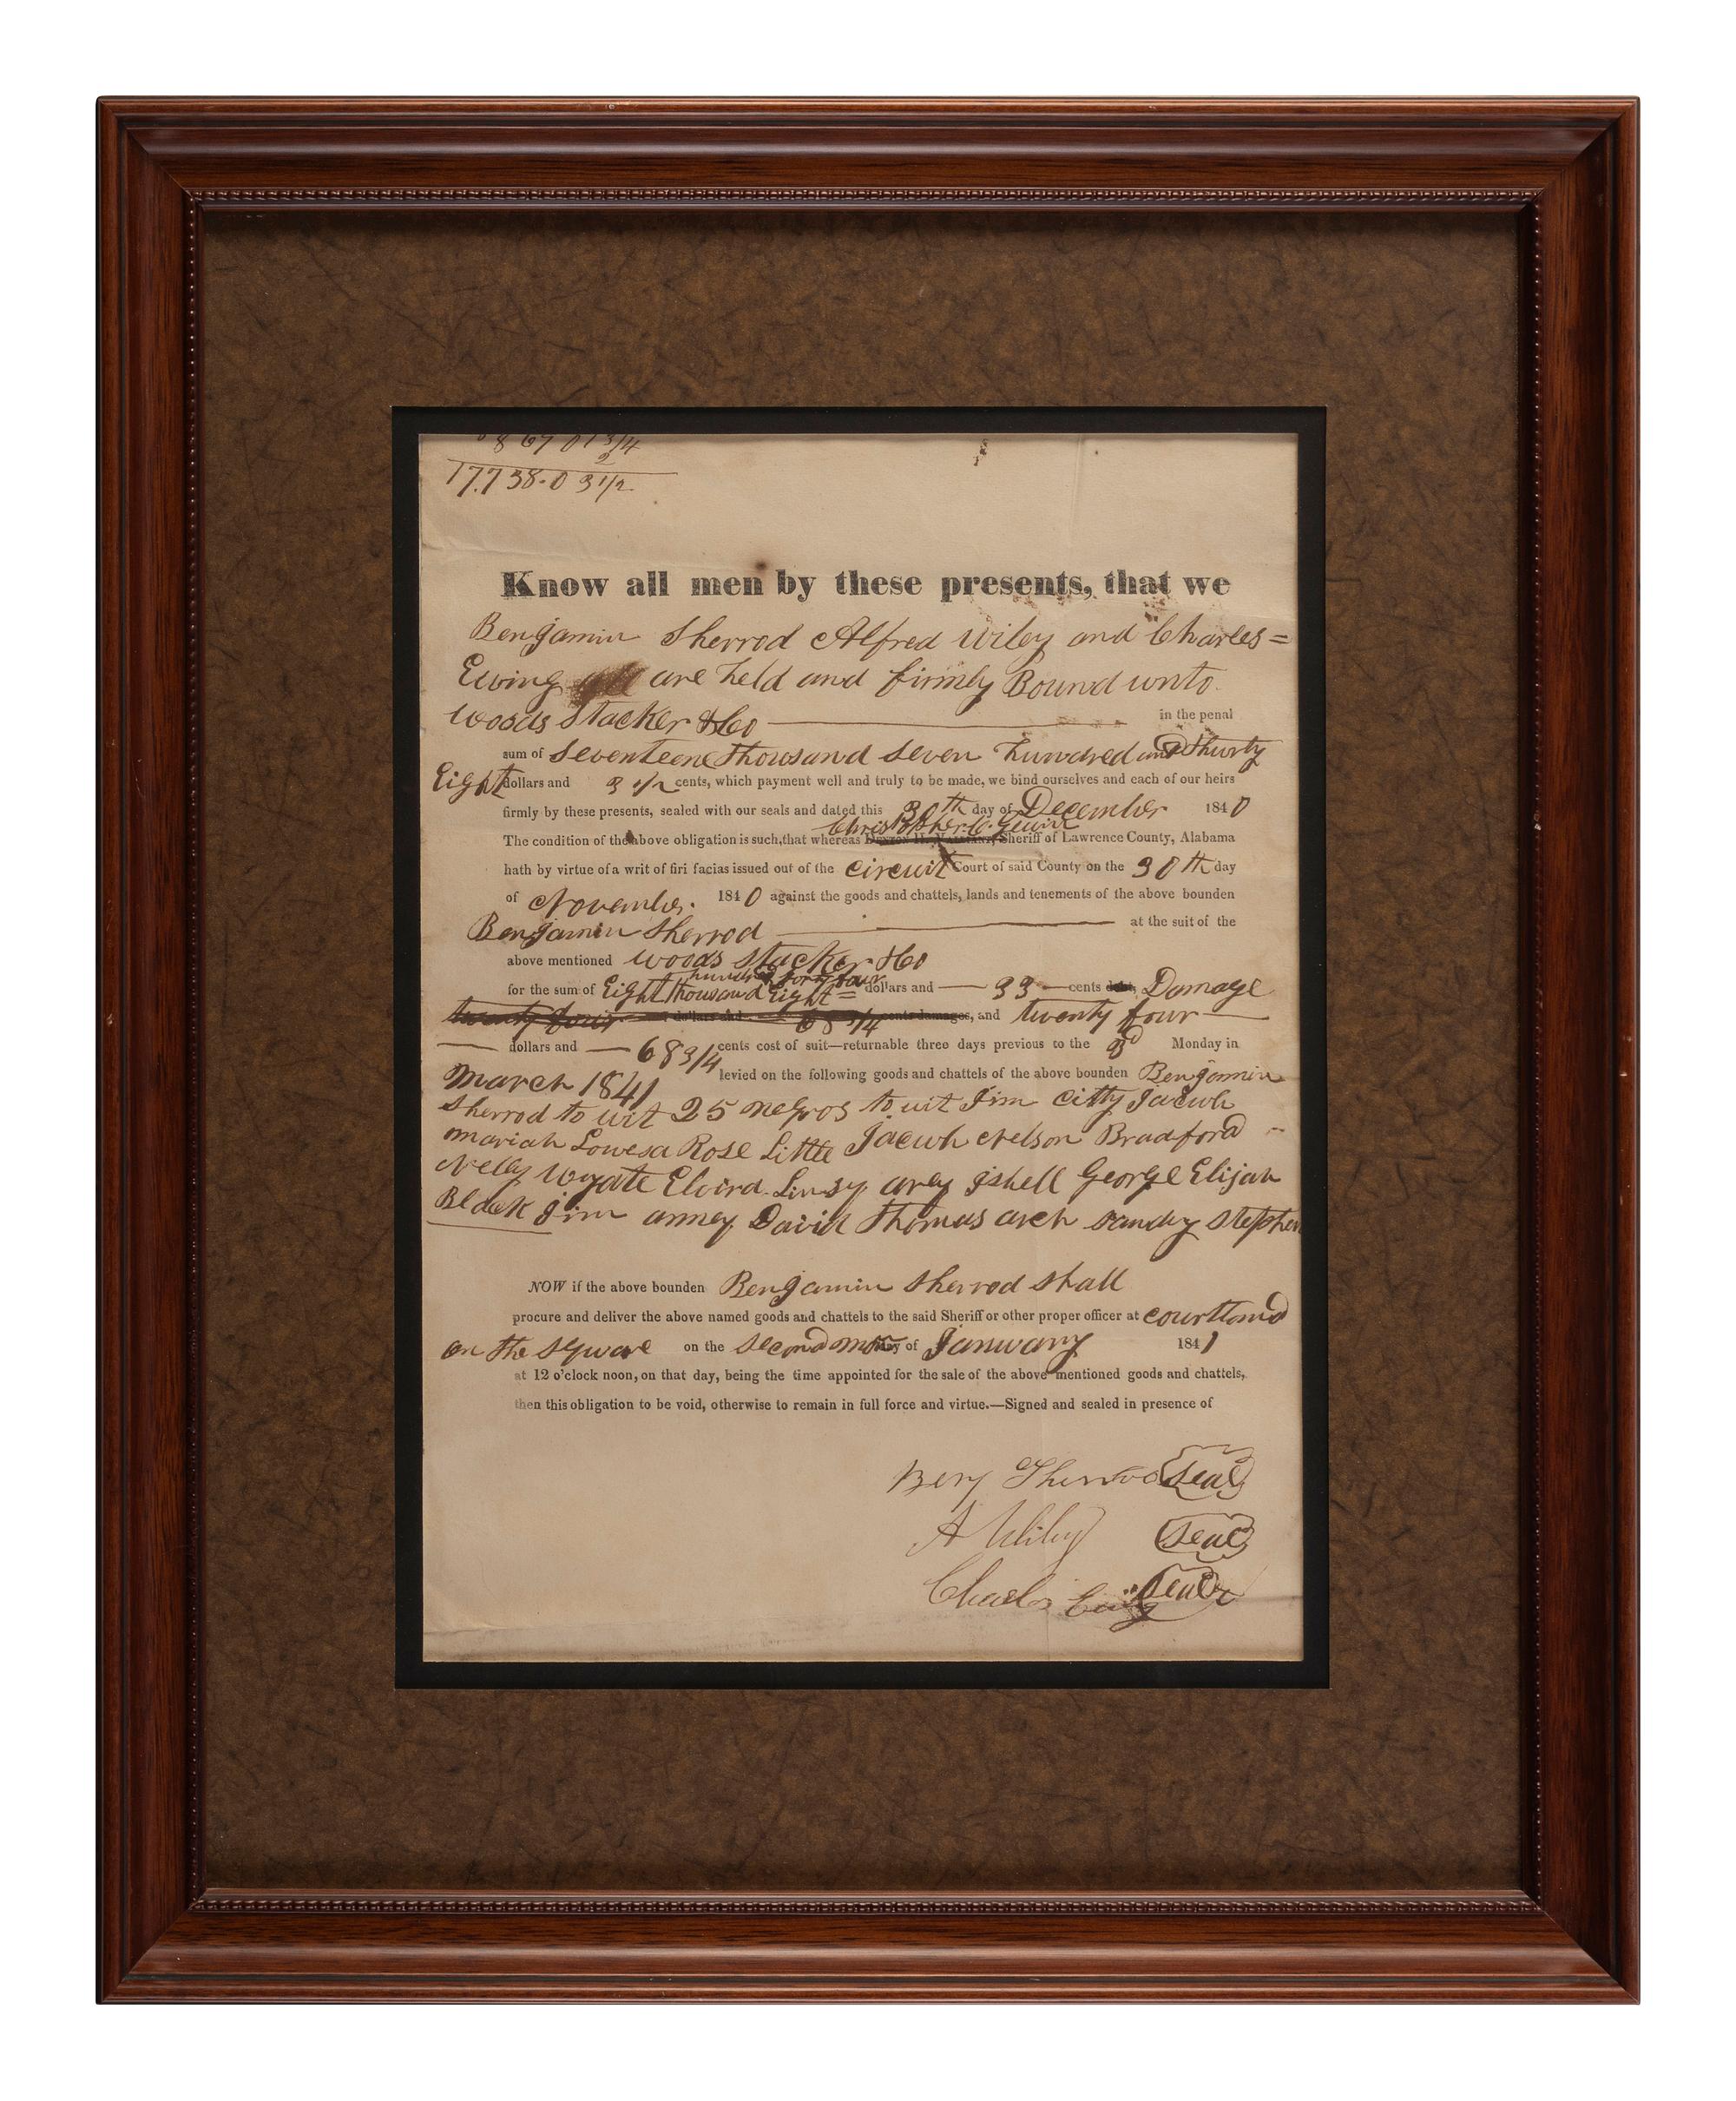 8 67 01 3/4
2
17.738.03 1/2
Know all men by these presents, that we
Benjamin Sherrod Alfred Wiley and Charles=
Ewing are held and firmly Bound unto
Woods Stacker & Co in the penal
sum of Seventeene Thousand Seven hundred and Thirty
Eight dollars and 3 1/2 cents, which payment well and truly to be made, we bind ourselves and each of our heirs
firmly by these presents, sealed with our seals and dated this 30th day of December 1840
The condition of the above obligation is such, that whereas Sheriff of Lawrence County, Alabama
hath by virtue of a writ of firi facias issued out of the circuit Court of said County on the 30th day
of November. 1840 against the goods and chattels, lands and tenements of the above bounden
Benjamin Sherrod at the suit of the
above mentioned Woods Stacker & Co
hundred forty four
for the sum of Eight Thousand Eight= dollars and — 33 — cents debt, Damage
twenty four dollars and 68 3/4 cents damages, and twenty four —
— dollars and — 68 3/4 cents cost of suit—returnable three days previous to the 3d Monday in
March 1841 levied on the following goods and chattels of the above bounden Benjamin
Sherrod to wit 25 Negros to wit Jim Citty Jacwh
Mariah Lowesa Rose Little Jacwh Nelson Bradford
Nelly Wyate Elvira Linsy arey Ishell George Elijah
Black Jim anney David Thomas arch sandy Stephen
NOW if the above bounden Benjamin Sherrod shall
procure and deliver the above named goods and chattels to the said Sheriff or other proper officer at Courtland
on the Square on the second mon day of January 1841
at 12 o'clock noon, on that day, being the time appointed for the sale of the above mentioned goods and chattels,
then this obligation to be void, otherwise to remain in full force and virtue.—Signed and sealed in presence of
Benj Sherrod Seal
A Wiley Seal
Charles Ewing Seal